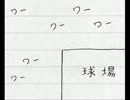 ワー
ワー
ワー
ワー
ワー
ワー
球場